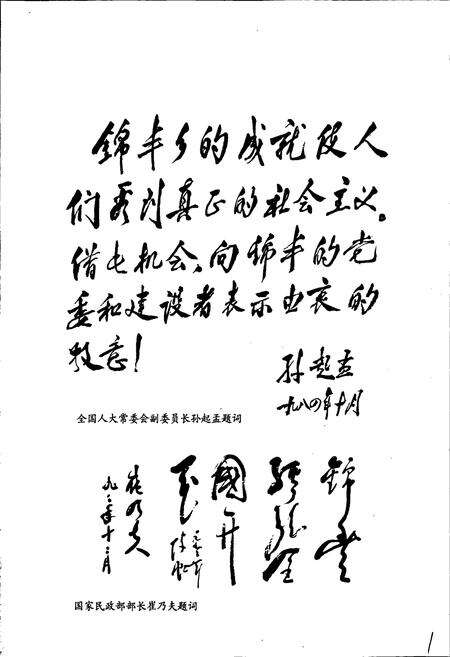 锦丰乡的成就使人
们看到真正的社会主义。
借此机会、向锦丰的党
委和建设者表示由衷的
敬意!
孙起孟
一九八四年十月
全国人大常委会副委员长孙起孟题词
锦丰
经验全
國开
花
崔乃夫
国家民政部部长崔乃夫题词
1